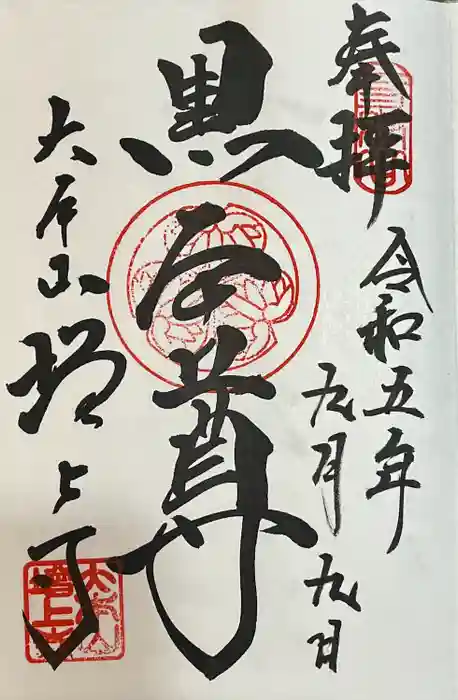 奉拝
令和五年
九月九日
黒本尊
大本山増上寺